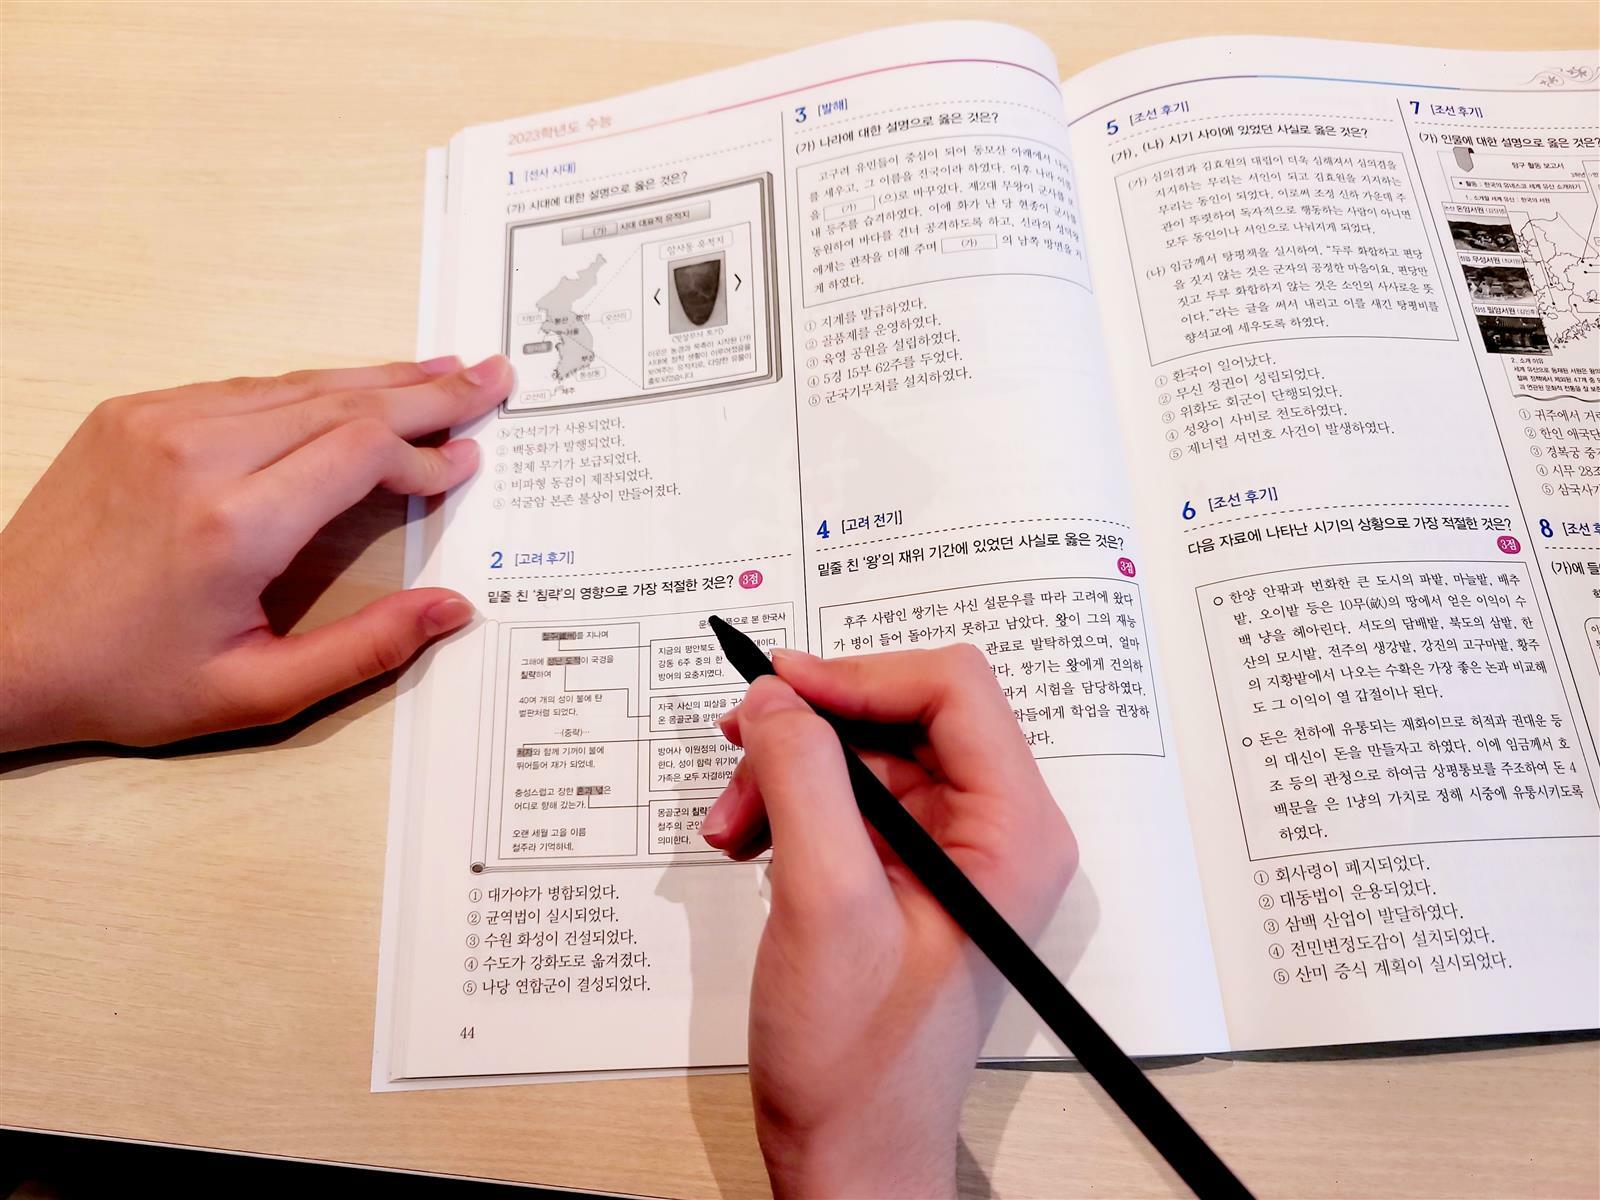 2023학년도 수능
1 [선사 시대]
(가) 시대에 대한 설명으로 옳은 것은?
(가) 시대 대표적 유적지
암사동 유적지
지탑리
봉산
오산리
서울
부산
동삼동
고산리
제주
<빗살무늬 토기>
이곳은 농경과 목축이 시작된 (가)
시대에 정착 생활이 이루어졌음을
보여주는 유적지로, 다양한 유물이
출토되었습니다.
① 간석기가 사용되었다.
② 백동화가 발행되었다.
③ 철제 무기가 보급되었다.
④ 비파형 동검이 제작되었다.
⑤ 석굴암 본존 불상이 만들어졌다.
2 [고려 후기]
밑줄 친 '침략'의 영향으로 가장 적절한 것은? 3점
본 한국사
철주(鐵州)를 지나며
그해에 성난 도적이 국경을
침략하여
40여 개의 성이 불에 탄
벌판처럼 되었다.
…(중략)…
처자와 함께 기꺼이 불에
뛰어들어 재가 되었네.
충성스럽고 장한 혼과 넋은
어디로 향해 갔는가.
오랜 세월 고을 이름
철주라 기억하네.
지금의 평안북도
강동 6주 중의 한
방어의 요충지였다.
자국 사신의 피살을
온 몽골군을
방어사 이원정의 아내와
한다. 성이 함락 위기에
가족은 모두
몽골군의 침략
철주의
의미한다.
① 대가야가 병합되었다.
② 균역법이 실시되었다.
③ 수원 화성이 건설되었다.
④ 수도가 강화도로 옮겨졌다.
⑤ 나당 연합군이 결성되었다.
44
3 [발해]
(가) 나라에 대한 설명으로 옳은 것은?
고구려 유민들이 중심이 되어 동모산 아래에서 나라
를 세우고, 그 이름을 진국이라 하였다. 이후 나라 이름
을 (가) (으)로 바꾸었다. 제2대 무왕이 군사를 보
내 등주를 습격하였다. 이에 화가 난 당 현종이 군사를
동원하여 바다를 건너 공격하도록 하고, 신라의 성덕왕
에게는 관작을 더해 주며 (가) 의 남쪽 방면을 치
게 하였다.
① 지계를 발급하였다.
② 골품제를 운영하였다.
③ 육영 공원을 설립하였다.
④ 5경 15부 62주를 두었다.
⑤ 군국기무처를 설치하였다.
4 [고려 전기]
밑줄 친 '왕'의 재위 기간에 있었던 사실로 옳은 것은?
3점
후주 사람인 쌍기는 사신 설문우를 따라 고려에 왔다
가 병이 들어 돌아가지 못하고 남았다. 왕이 그의 재능
관료로 발탁하였으며, 얼마
쌍기는 왕에게 건의하
과거 시험을 담당하였다.
학들에게 학업을 권장하
났다.
5 [조선 후기]
(가), (나) 시기 사이에 있었던 사실로 옳은 것은?
(가) 심의겸과 김효원의 대립이 더욱 심해져서 심의겸을
지지하는 무리는 서인이 되고 김효원을 지지하는
무리는 동인이 되었다. 이로써 조정 신하 가운데 주
관이 뚜렷하여 독자적으로 행동하는 사람이 아니면
모두 동인이나 서인으로 나뉘지게 되었다.
(나) 임금께서 탕평책을 실시하여, “두루 화합하고 편당
을 짓지 않는 것은 군자의 공정한 마음이요, 편당만
짓고 두루 화합하지 않는 것은 소인의 사사로운 뜻
이다.”라는 글을 써서 내리고 이를 새긴 탕평비를
향석교에 세우도록 하였다.
① 환국이 일어났다.
② 무신 정권이 성립되었다.
③ 위화도 회군이 단행되었다.
④ 성왕이 사비로 천도하였다.
⑤ 제너럴 셔먼호 사건이 발생하였다.
6 [조선 후기]
다음 자료에 나타난 시기의 상황으로 가장 적절한 것은?
3점
○ 한양 안팎과 번화한 큰 도시의 파밭, 마늘밭, 배추
밭, 오이밭 등은 10무(畝)의 땅에서 얻은 이익이 수
백 냥을 헤아린다. 서도의 담배밭, 북도의 삼밭, 한
산의 모시밭, 전주의 생강밭, 강진의 고구마밭, 황주
의 지황밭에서 나오는 수확은 가장 좋은 논과 비교해
도 그 이익이 열 갑절이나 된다.
○ 돈은 천하에 유통되는 재화이므로 허적과 권대운 등
의 대신이 돈을 만들자고 하였다. 이에 임금께서 호
조 등의 관청으로 하여금 상평통보를 주조하여 돈 4
백문을 은 1냥의 가치로 정해 시중에 유통시키도록
하였다.
① 회사령이 폐지되었다.
② 대동법이 운용되었다.
③ 삼백 산업이 발달하였다.
④ 전민변정도감이 설치되었다.
⑤ 산미 증식 계획이 실시되었다.
7 [조선 후기]
(가) 인물에 대한 설명으로 옳은 것은?
탐구 활동 보고서
• 활동 : 한국의 유네스코 세계 유산 소개하기
1. 소개할 세계 유산 : 한국의 서원
돈암서원
무성서원
필암서원
2. 소개 이유
① 귀주에서
② 한인 애국단
③ 경복궁
④ 시무 28조
⑤ 삼국사기
8 [조선
(가)에